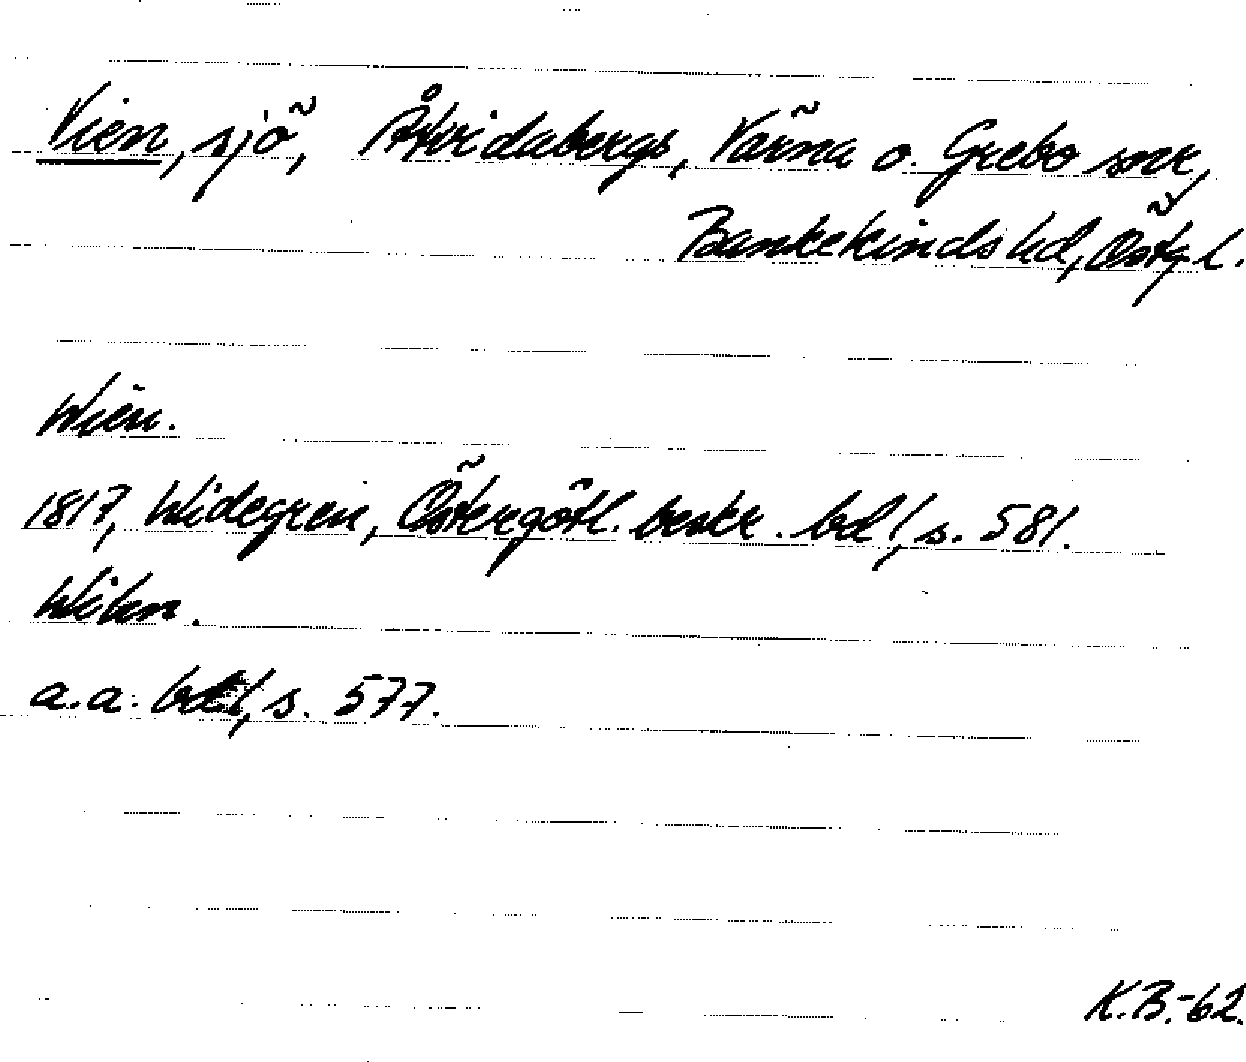 Vien, sjö, Åtvidabergs, Värna o. Grebo snr,
Bankekinds hd, Östg.l.
Wien.
1817, Widegren, Östergötl. beskr. bd 1, s. 581.
a.a. bd 1, s. 577.
K.B.-62.